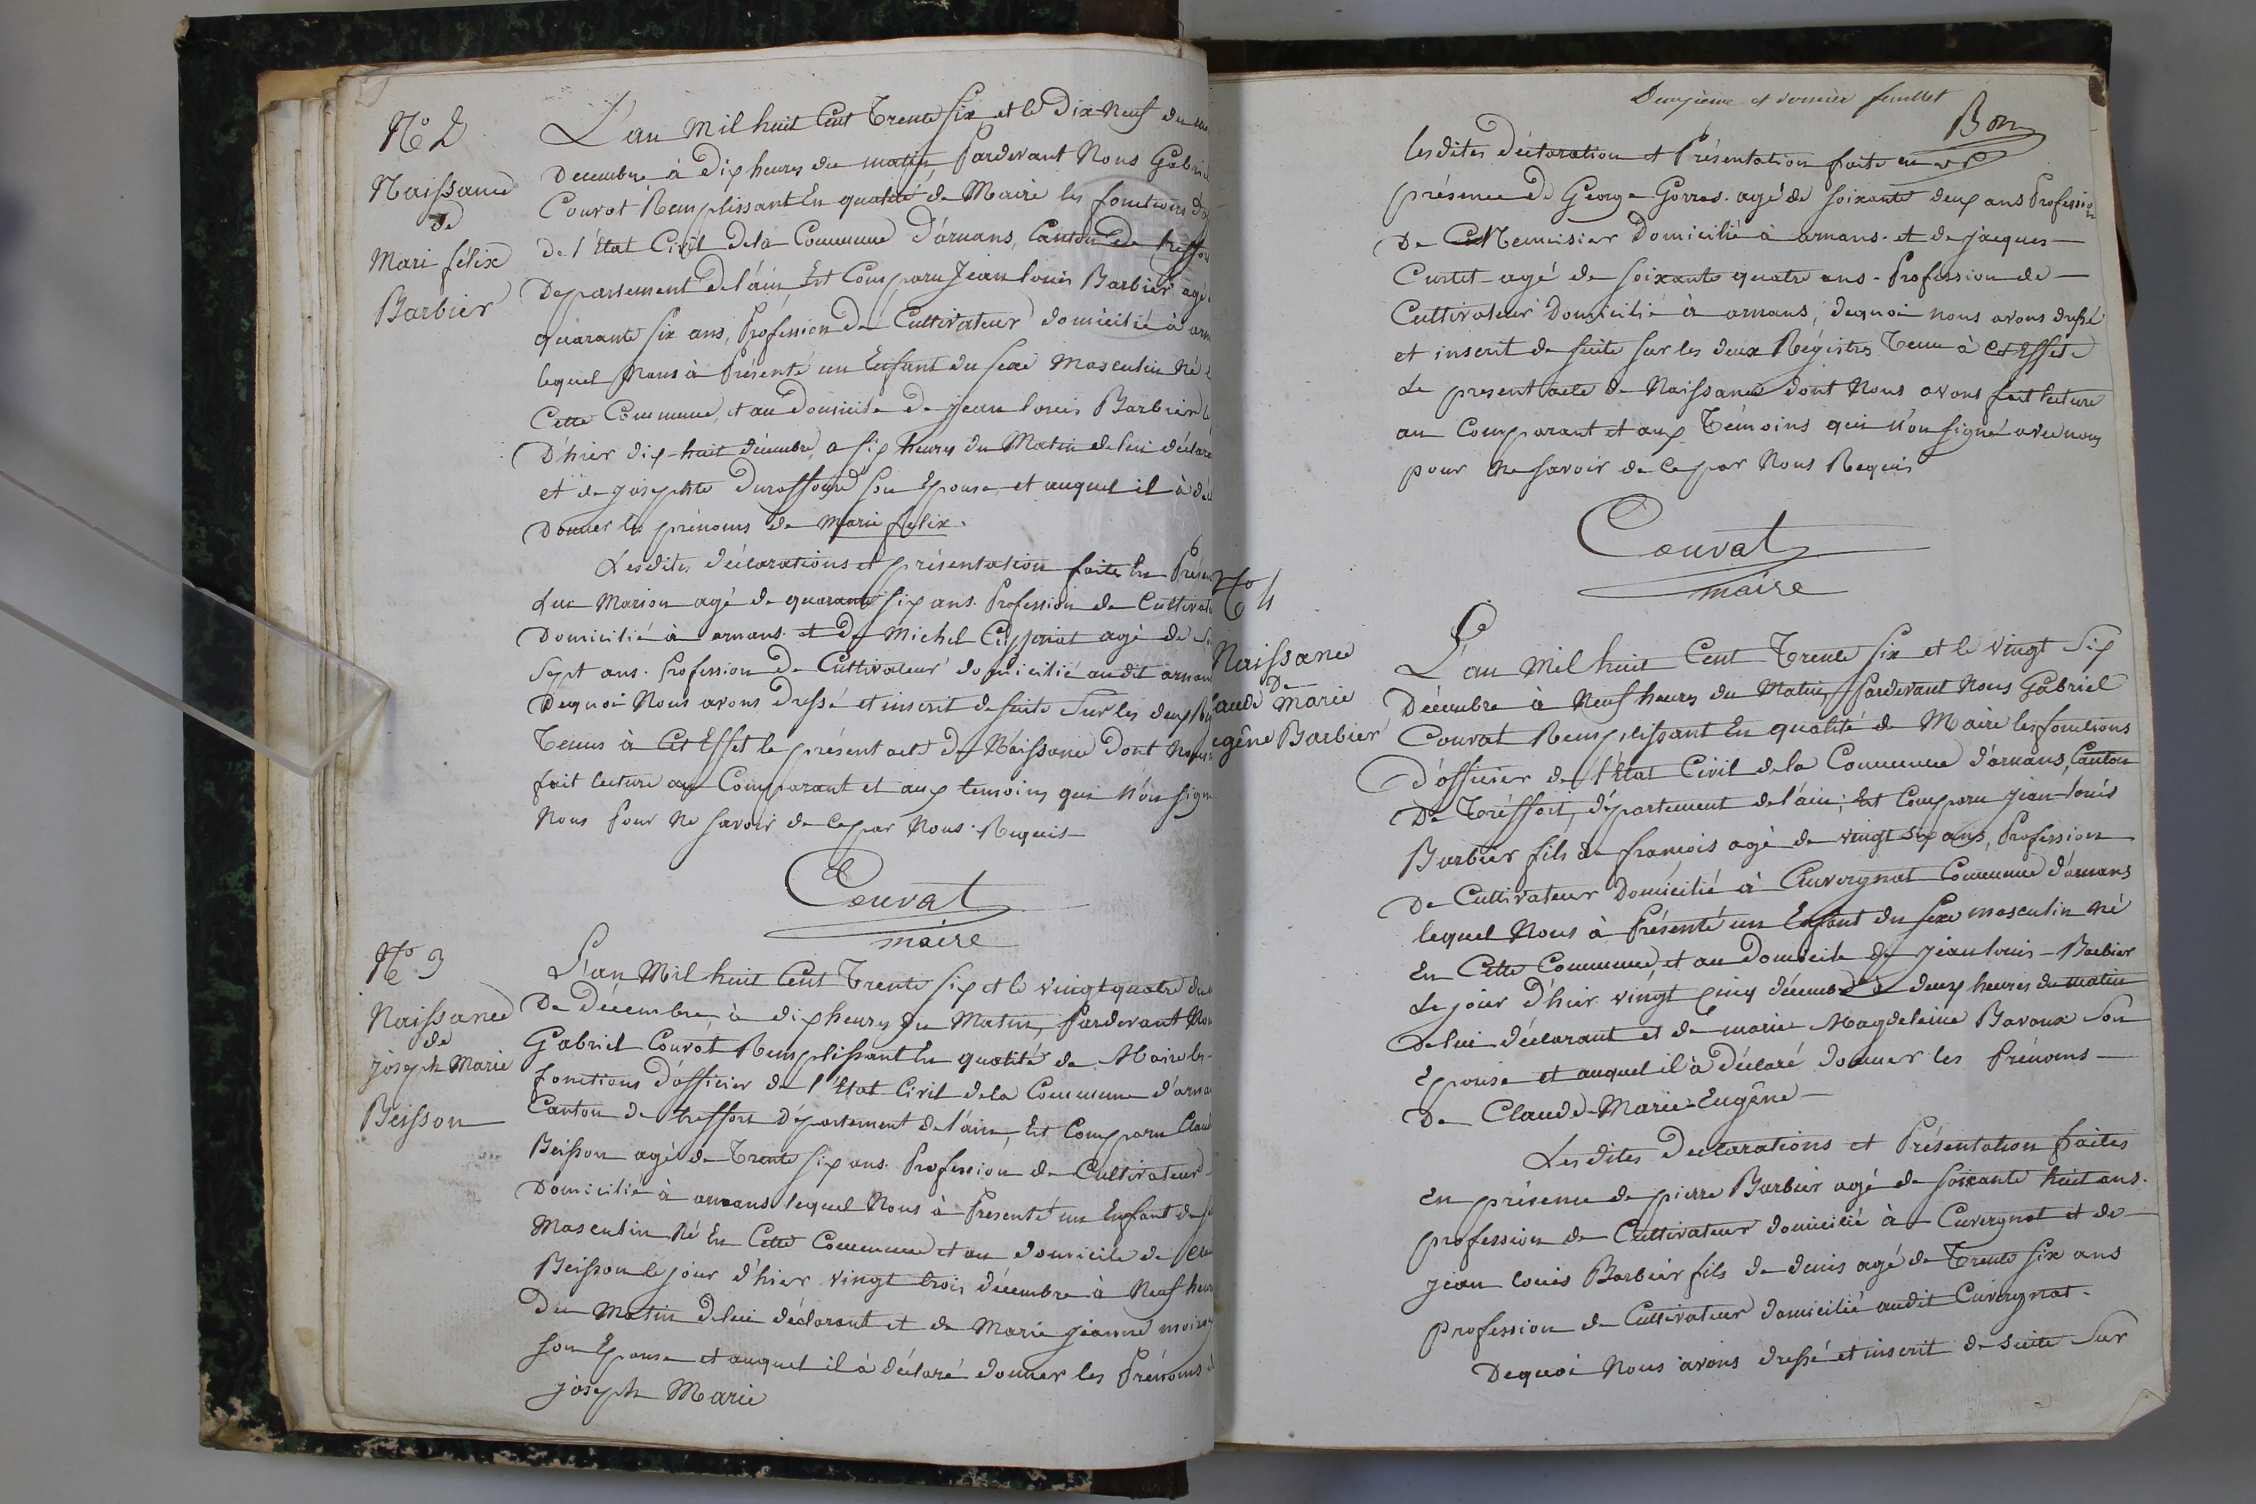 No 2
Naissance
de
Mari felix
Barbier
L'an Mil huit Cent Trente Six et le Dix-Neuf du
Decembre à Dix heures du matin, Pardevant Nous Gabriel
Couvat Remplissant En qualité de Maire les fonctions
de l'Etat Civil dela Commune d'arnans, Canton de treffor
Departement de l'ain Est Comparu Jean louis Barbier agé
quarante six ans, Profession de Cultivateur domicilié à arn
lequel Nous à Présenté un Enfant du sexe Masculin Né
Cette Commune, et au domicile de jean louis Barbier
D'hier dix-huit décembre, a six heures du Matin de lui déclar
et de josephte son Epouse, et auquel il à dé
Donner les prénoms de Marie felix.
Lesdites déclarations et présentation faites En Présen
Luc Marion agé de quarante six ans. Profession de Cultivat
Domicilié à arnans. et de Michel agé de
Sept ans. Profession de Cultivateur domicilié audit arnan
Dequoi Nous avons Dressé et inscrit de suite sur les deux R
Tenus à Cet Effet le présent acte de Naissance Dont Nous
fait lecture au Comparant et aux temoins qui N'on sign
Nous pour Ne savoir de ce par Nous Requis
Couvat
maire
No 3
Naissance
de
joseph Marie
Beisson
L'an Mil huit Cent Trente Six et le vingt quatre du
De décembre à dix heures du Matin, Pardevant No
Gabriel Couvat Remplissant En qualité de Maire les
fonctions d'officier de l'Etat Civil dela Commune d'arna
Canton de treffort Département de l'ain, Est Comparu Clau
Beisson agé de Trente six ans. Profession de Cultivateur
Domicilié à arnans lequel Nous à Presenté un Enfant du
Masculin Né En Cette Commune et au domicile de
Beisson le jour d'hier vingt trois décembre à Neuf heur
Du Matin de lui déclarant et de Marie jeanne
son Epouse et auquel il à déclaré donner les Prénoms
joseph Marie
Deuxième et dernier feuillet
Bon
les dites déclaration et Présentation faite en
présence de George Gorras. agé de soixante deux ans Profession
De Menuisier Domicilié à arnans. et de jacques
Curtet agé de soixante quatre ans. Profession de
Cultivateur Domicilié à arnans, dequoi nous avons dressé
et inscrit de suite sur les deux Régistres Tenu à Cet Effet
Le present acte de Naissance dont Nous avons fait lecture
au Comparant et aux Témoins qui n'on signé avec nous
pour Ne savoir de ce par Nous Requis
Couvat
maire
No 4
Naissance
De
aude Marie
egêne Barbier
L'an Mil huit Cent Trente Six et le vingt Six
Décembre à Neuf heures du Matin, Pardevant Nous Gabriel
Couvat Remplissant En qualité de Maire les fonctions
d'officier de l'Etat Civil dela Commune d'arnans, Canton
De Tréffort, département de l'ain, Est Comparu jean-louis
Barbier fils de francois agé de vingt six ans, Profession
De Cultivateur Domicilié à Cuvergnat Commune d'arnans
lequel Nous à Présenté un Enfant du sexe masculin né
En Cette Commune, et au domicile de jean louis Barbier
Le jour d'hier vingt Cinq décembre à deux heures du matin
De lui déclarant et de marie Magdeleine Bavoux Son
Epouse et auquel il à déclaré donner les Prénoms
De Claude-Marie-Eugêne
Les dites Declarations et Présentation faites
En présence de pierre Barbier agé de soixante huit ans.
profession de Cultivateur domicilié à Cuvergnat et de
jean louis Barbier fils de denis agé de Trente six ans
profession de Cultivateur domicilié audit Cuvergnat.
Dequoi Nous avons dressé et inscrit de suite sur